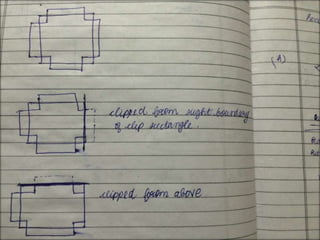 clipped from right boundary
of clip rectangle.
(A)
clipped from above